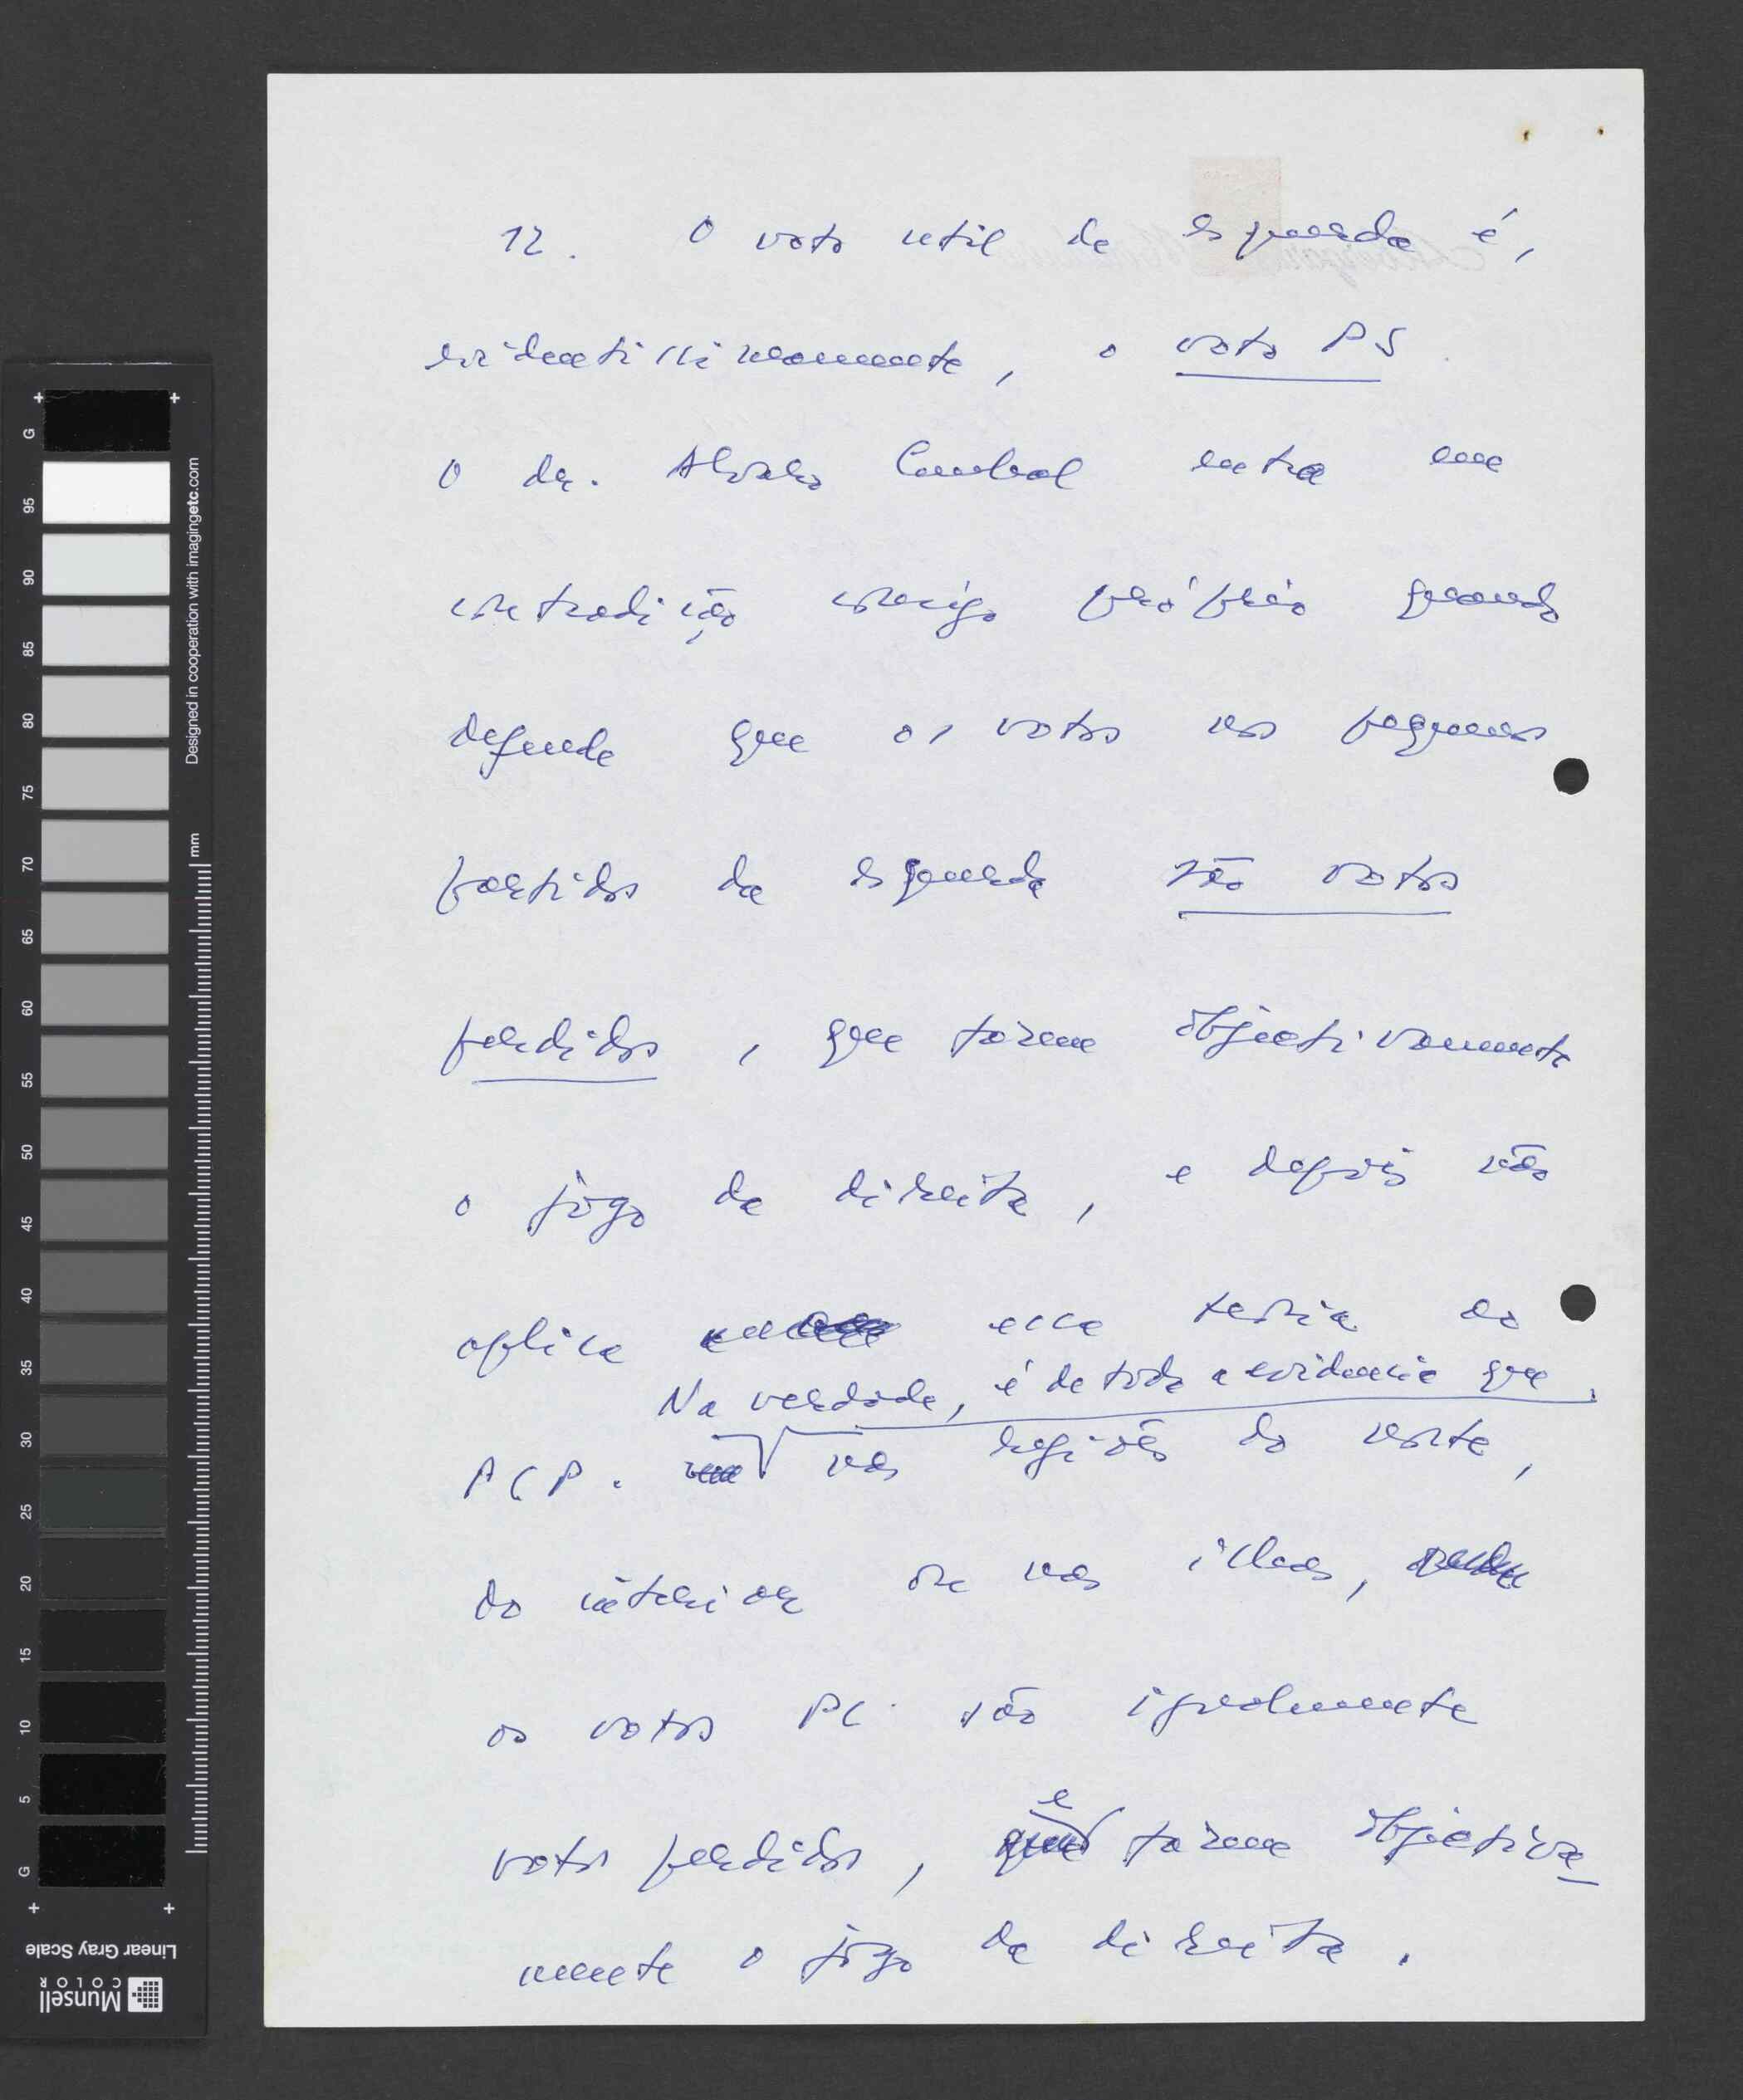 12. O voto util da esquerda é,
evidentissimamente, o voto PS.
O dr. Alvaro Cunhal entra em
contradição consigo próprio quando
defende que os votos nos pequenos
partidos da esquerda são votos
perdidos, que fazem objectivamente
o jogo da direita, e depois não
aplica essa teoria ao
Na verdade, é de toda a evidencia que,
PCP. nas regiões do norte,
do interior ou nas ilhas,
os votos PC são igualmente
votos perdidos, e fazem objectiva-
mente o jogo da direita.
G 95 90 85 80 75 70 65 60 55 50 45 40 35 30 25 20 15 10 5 G
Designed in cooperation with imagingetc.com
mm
Linear Gray Scale
Munsell
COLOR